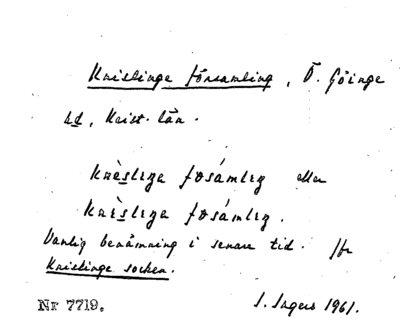 Knislinge församling, Ö. Göinge
hd, Krist. län.
knèsleŋa fosámleŋ eller
knèsleŋa fosámleŋ.
Vanlig benämning i senare tid. Jfr
Knislinge socken.
Nr 7719. I. Ingers 1961.